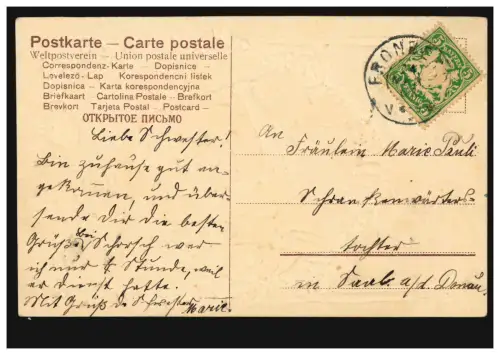 Postkarte — Carte postale
Weltpostverein — Union postale universelle
Correspondenz-Karte — Dopisnice
Levelező-Lap — Korespondencni listek
Dopisnica — Karta korespondencyjna
Briefkaart — Cartolina Postale — Brefkort
Brevkort — Tarjeta Postal — Postcard —
ОТКРЫТОЕ ПИСЬМО
Liebe Schwester!
Bin zuhause gut an-
gekommen, und über-
sende Dir die besten
Grüß. Bei Schorsch war
ich nur Stunde, weil
er Dienst hatte.
Mit Gruß Schwester
Marie.
FRON
5
5
An
Fräulein Marie Pauli
Schrankenwärters-
tochter
in Saal a/d. Donau.